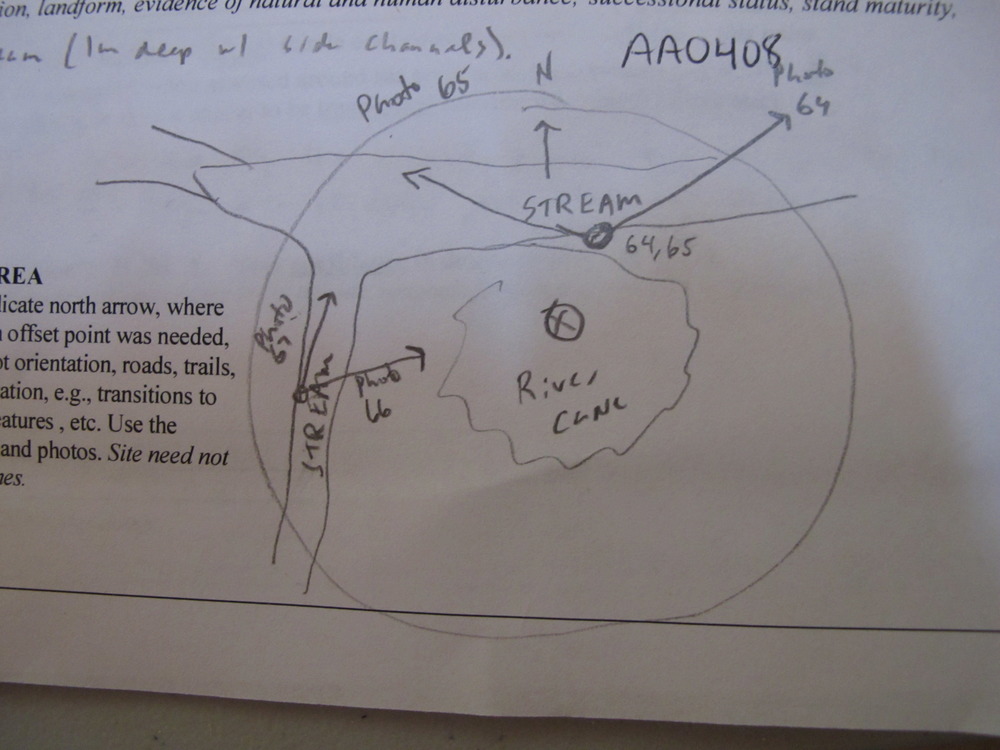 ion, landform, evidence of natural and human disturbance, successional status, stand maturity,
am (1m deep w/ side channels).
AA0408
Photo 65
N
Photo
64
STREAM
64,65
REA
licate north arrow, where
offset point was needed,
ot orientation, roads, trails,
ation, e.g., transitions to
eatures , etc. Use the
and photos. Site need not
nes.
STREAM
Photo
66
River
Cane